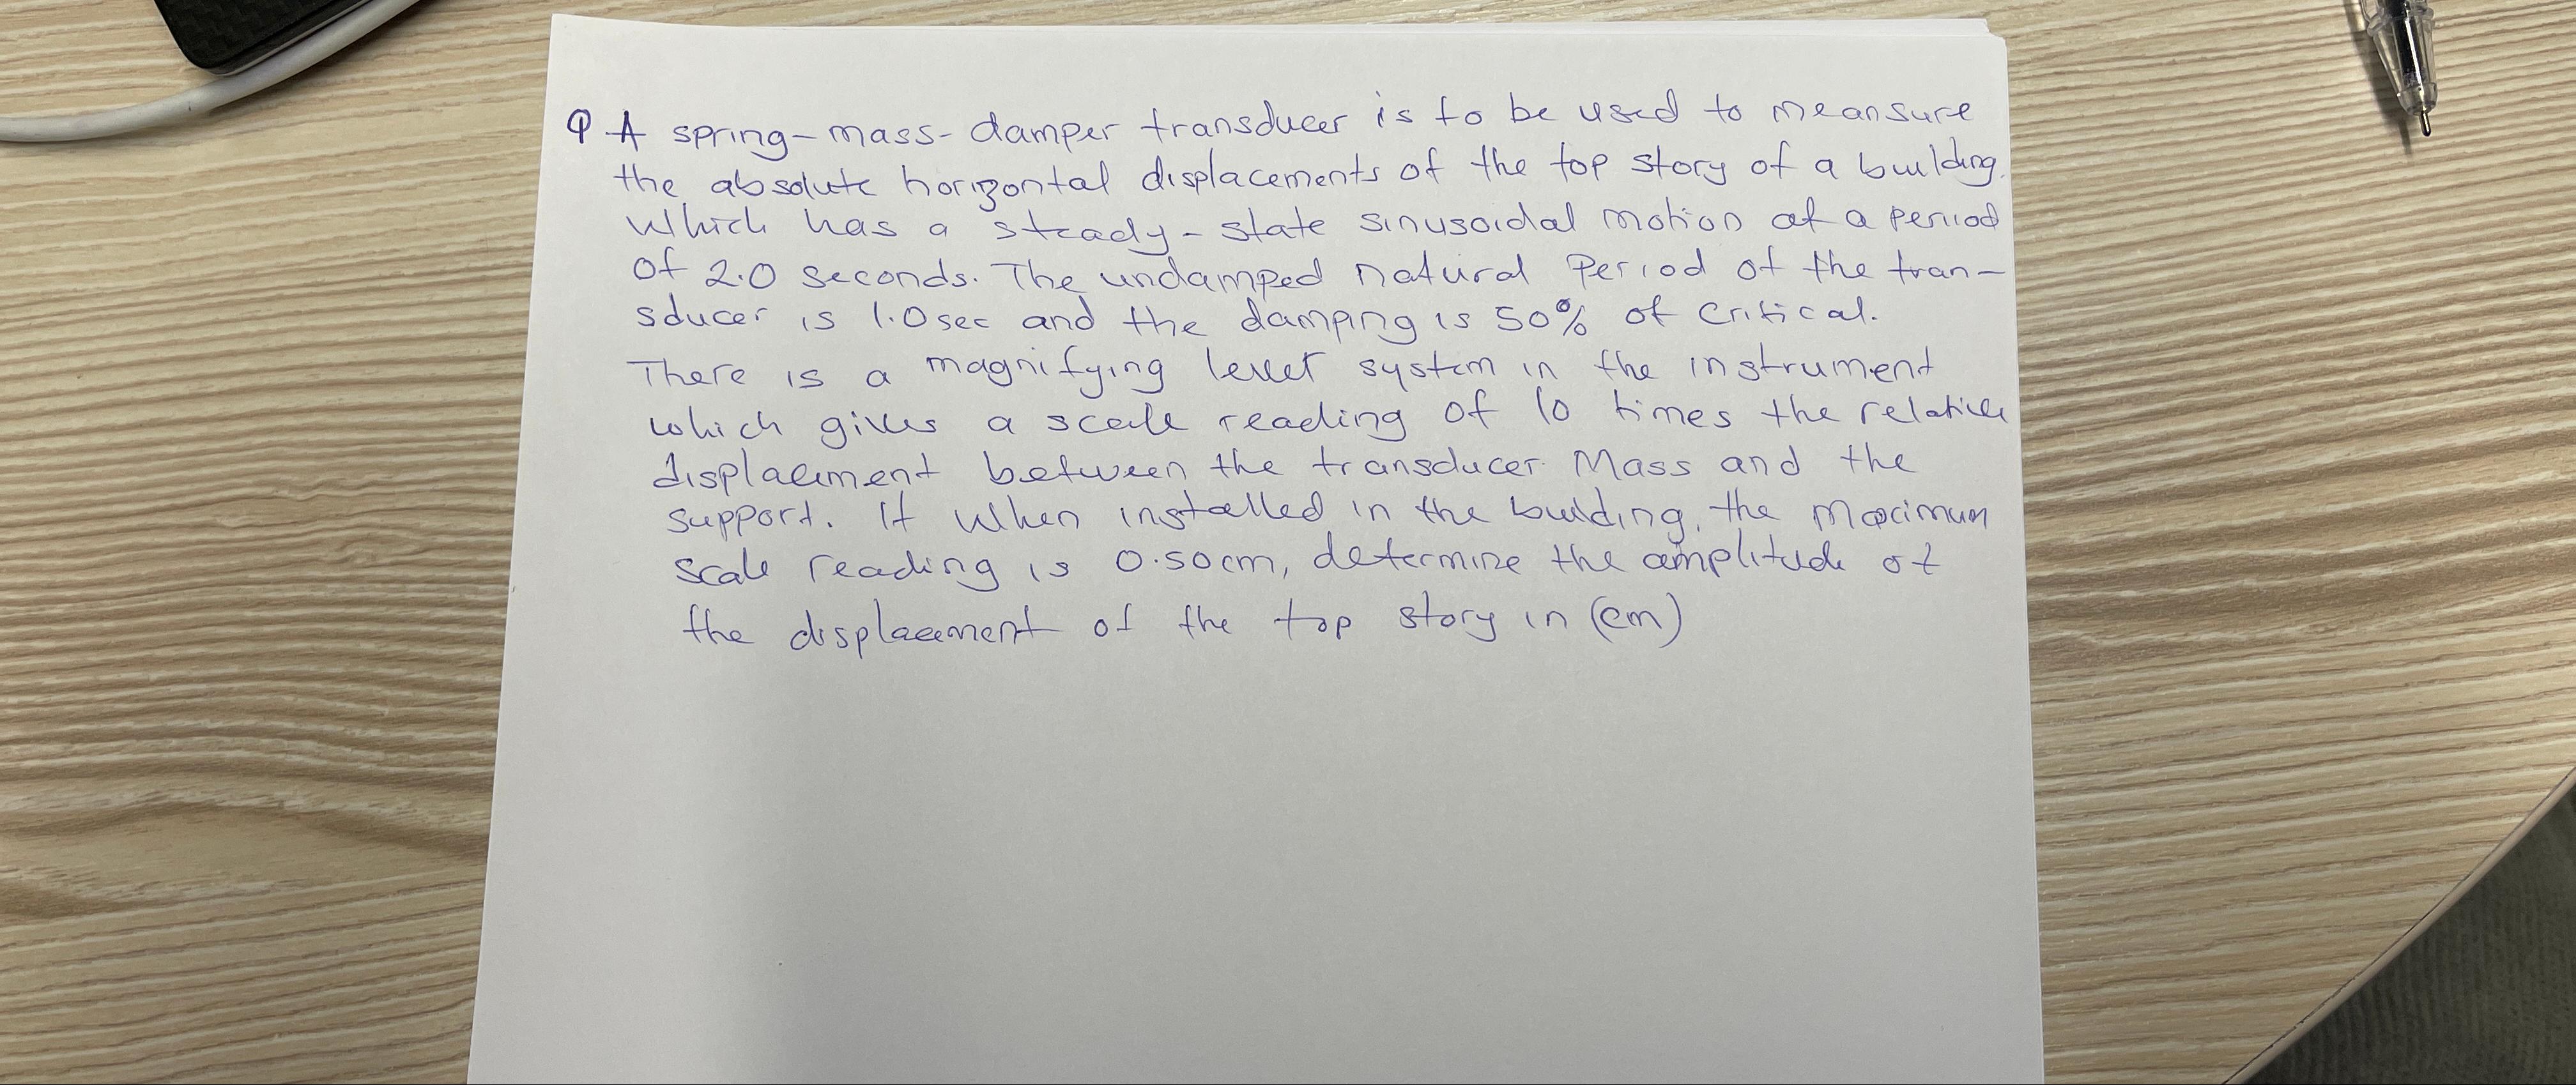 Q A spring-mass-damper transducer is to be used to meansure
the absolute horizontal displacements of the top story of a building.
Which has a steady-state sinusoidal motion at a period
of 2.0 seconds. The undamped natural Period of the tran-
sducer is 1.0 sec and the damping is 50% of critical.
There is a magnifying lever system in the instrument
which gives a scale reading of 10 times the relative
displacement between the transducer Mass and the
support. If when installed in the building, the maximum
scale reading is 0.50cm, determine the amplitude of
the displacement of the top story in (cm)